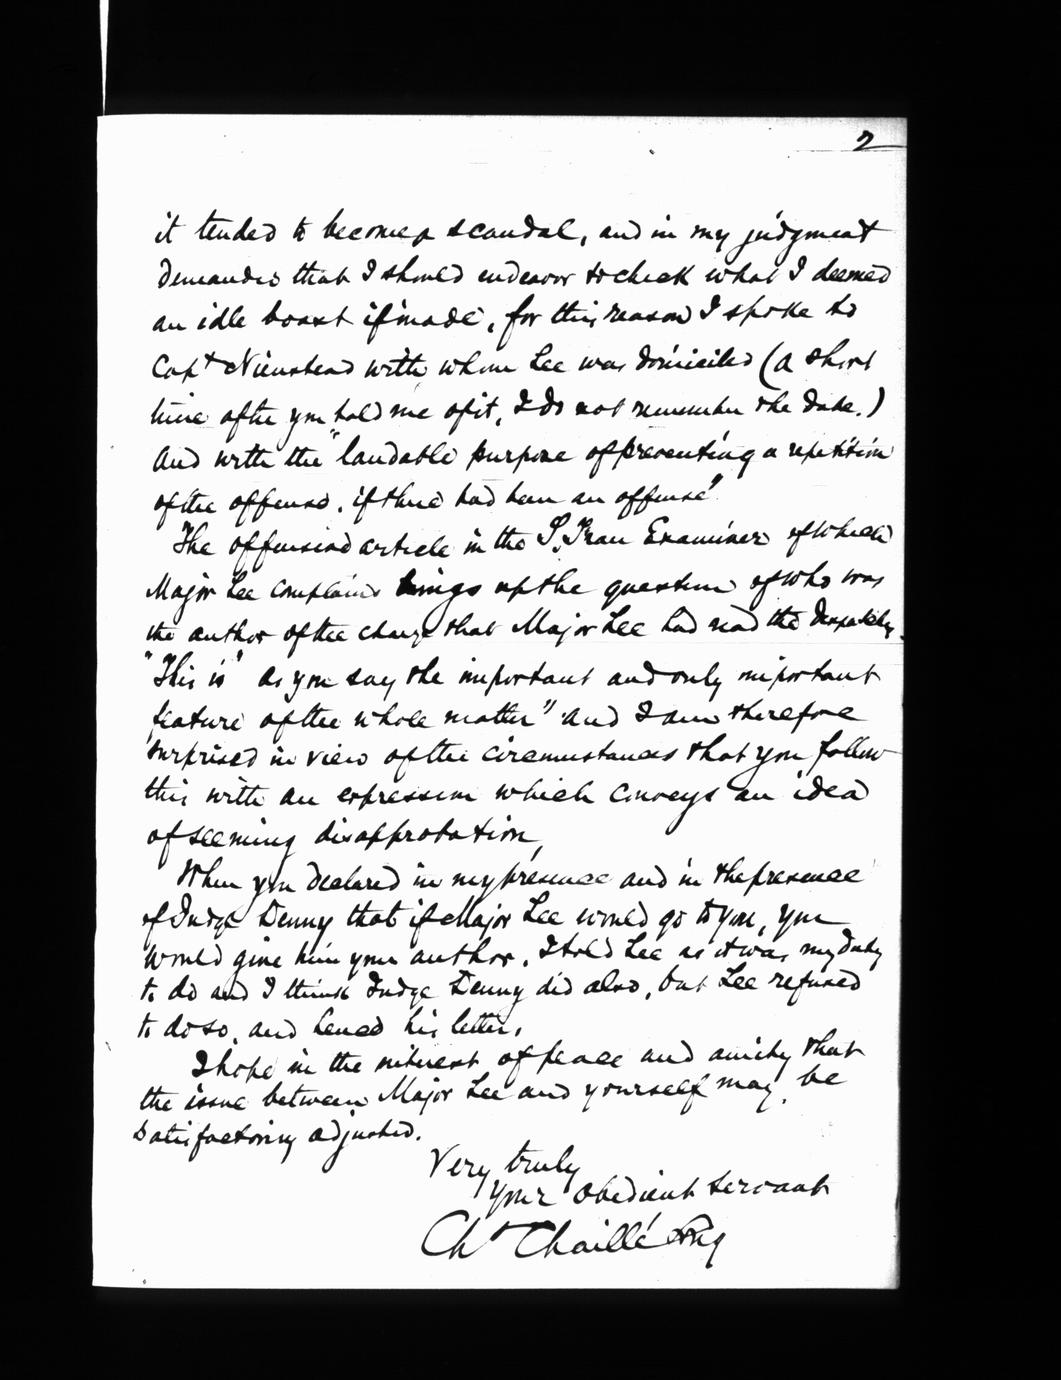 2
it tended to become a scandal, and in my judgment
demanded that I should endeavor to check what I deemed
an idle boast if made, for this reason I spoke to
Capt Nienstead with whom Lee was domiciled (a short
time after you told me of it, I do not remember the date.)
And with the "laudable purpose of preventing a repetition
of the offense, if there had been an offense"
The offensive article in the S. Fran Examiner of which
Major Lee complains brings up the question of who was
the author of the charge that Major Lee had read the despatches.
"This is" as you say the important and only important
feature of the whole matter" and I am therefore
surprised in view of the circumstances that you follow
this with an expression which conveys an idea
of seeming disapprobation,
When you declared in my presence and in the presence
of Judge Denny that if Major Lee would go to you, you
would give him your author, I told Lee as it was my duty
to do and I think Judge Denny did also, but Lee refused
to do so, and hence his letter.
I hope in the interest of peace and amity that
the issue between Major Lee and yourself may be
satisfactorily adjusted.
Very truly
your obedient servant
Ch Chaillé Long